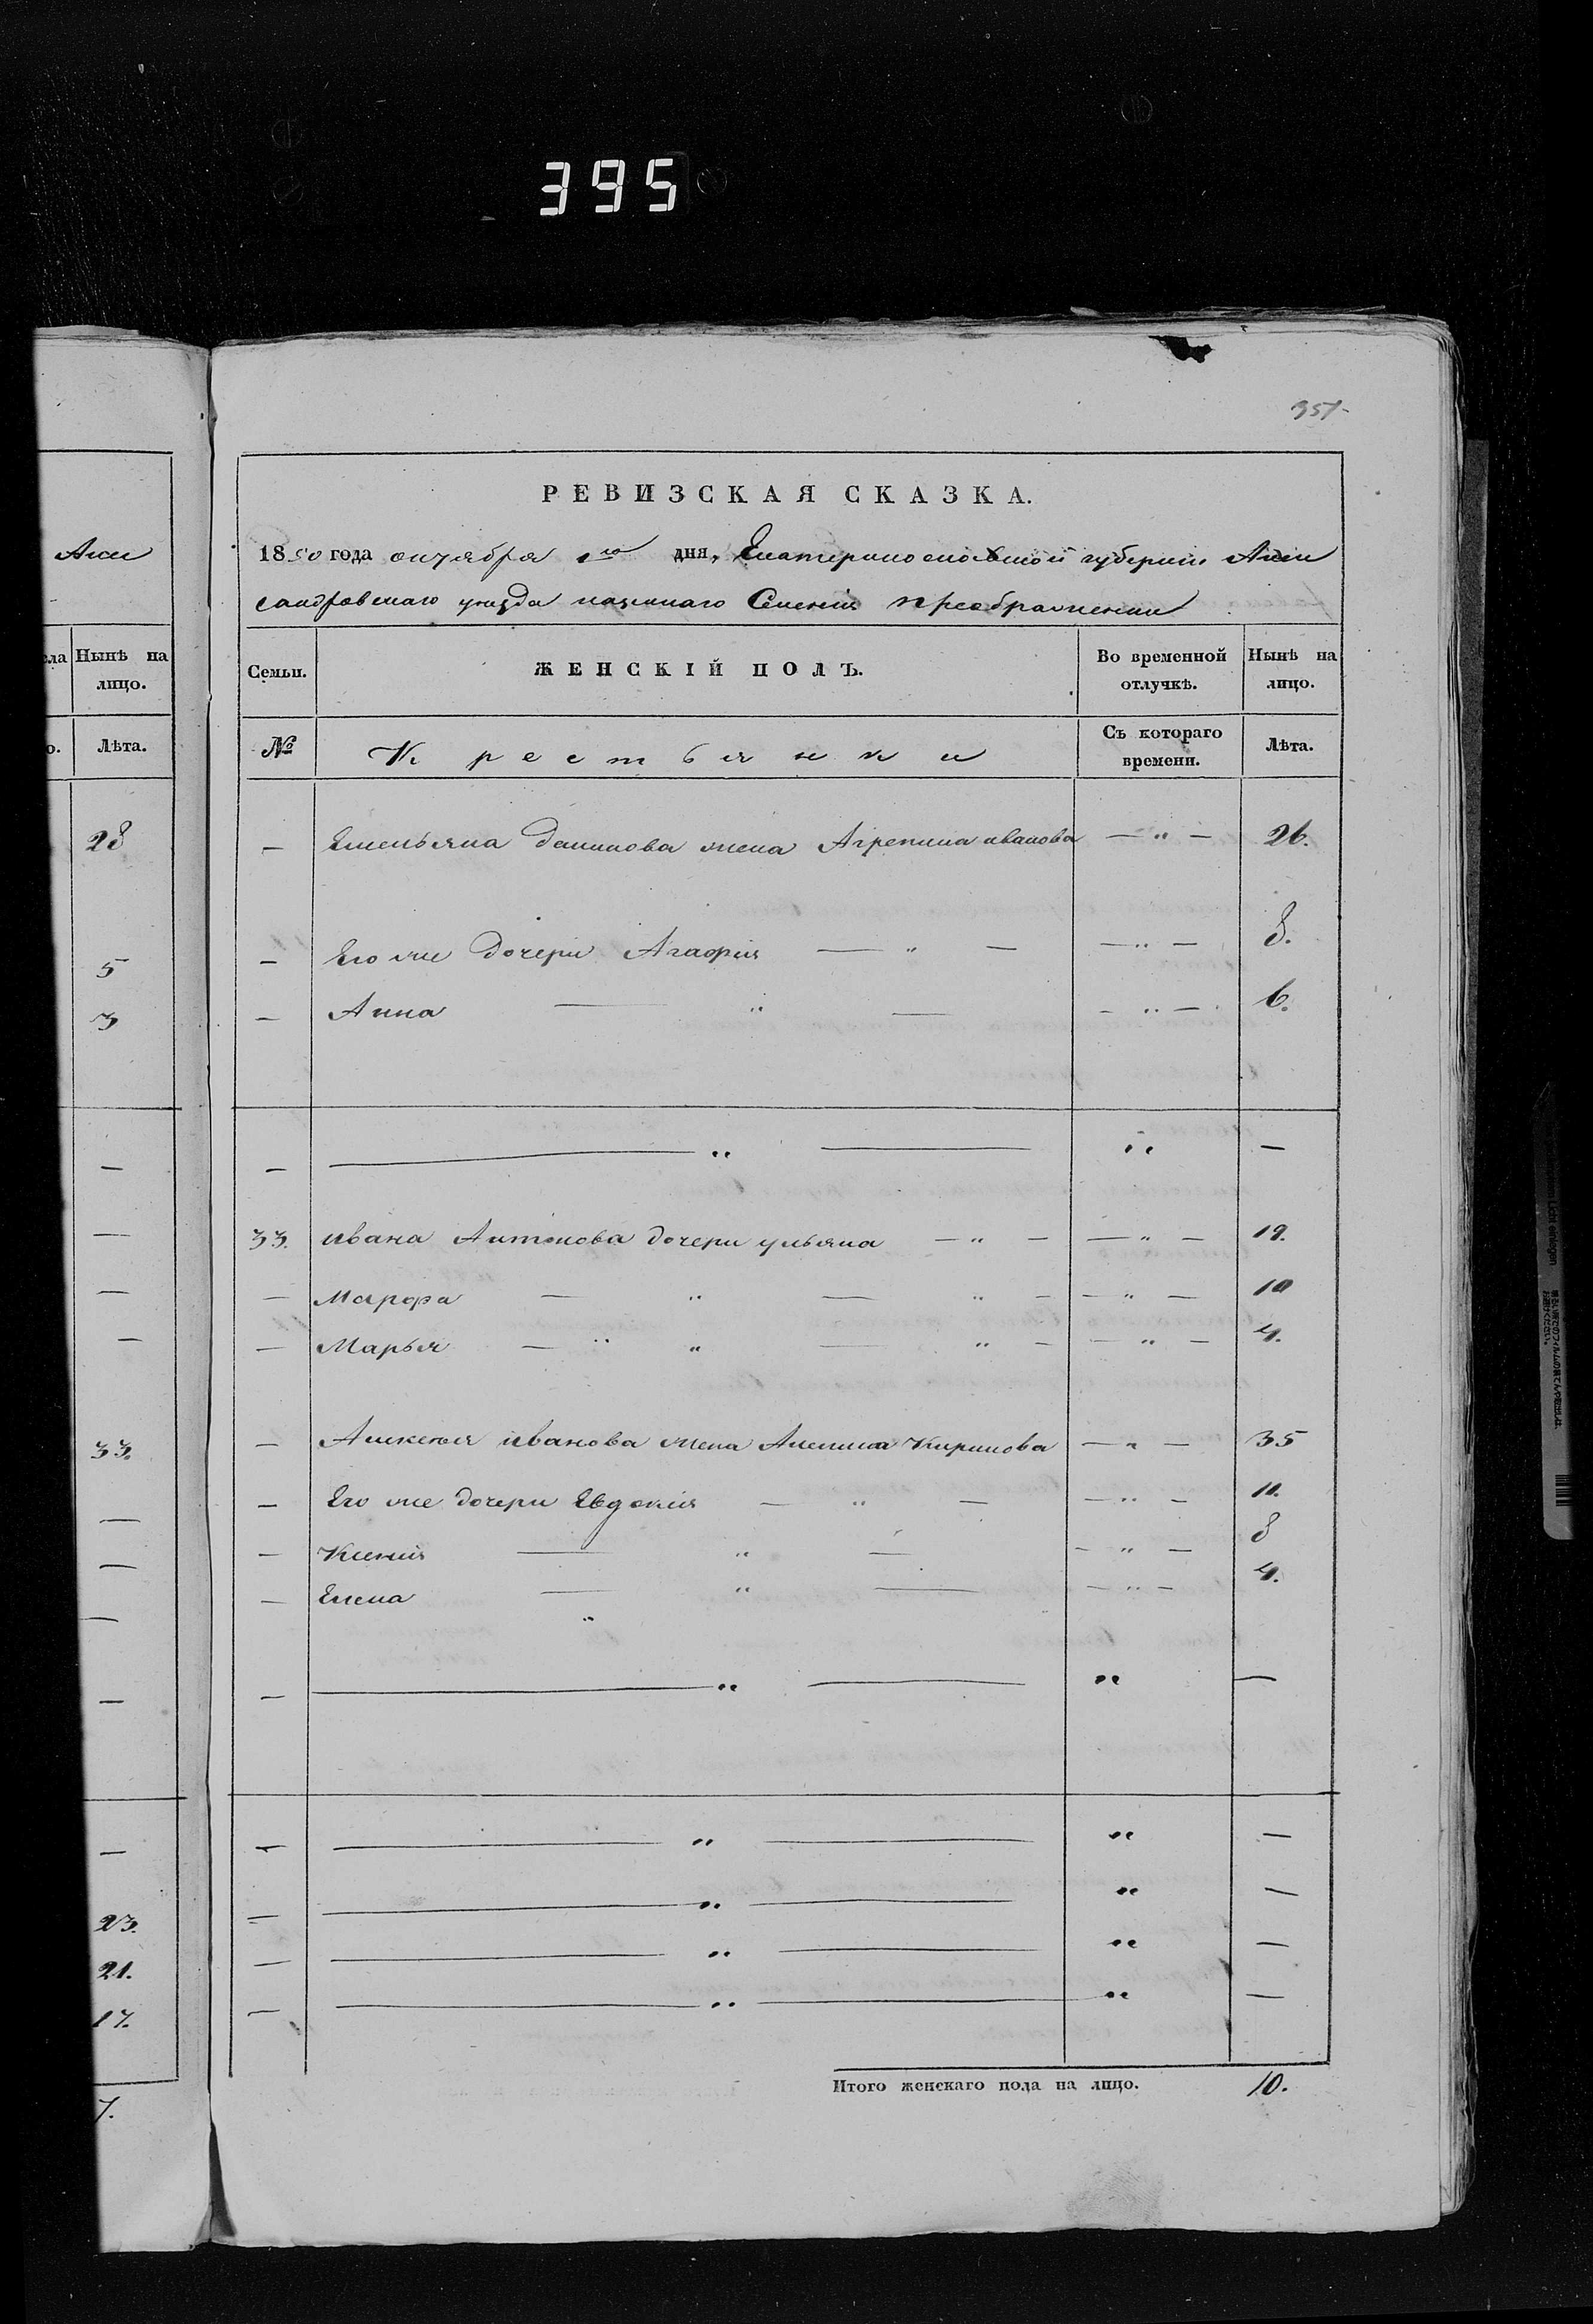 395
357
РЕВИЗСКАЯ СКАЗКА.
1850 года октября 1го дня, Екатеринославской губернии Алек
сандровскаго уезда казеннаго Селения преображенки
Алек
Нынѣ на лицо.
Лѣта.
28
5
3
33.
23.
21.
17.
7.
Семьи. ЖЕНСКІЙ ПОЛЪ. Во временной отлучкѣ. Нынѣ на лицо.
№ Крестьянки Съ котораго времени. Лѣта.
— Емельяна Данилова жена Агрепина иванова — " — 26.
— Его же Дочери Агафия — " — — " — 8.
— Анна — " — — " — 6.
— — " — " —
33. ивана Антонова дочери ульяна — " — — " — 19.
— Марфа — " — " — — " — 10
— Марья — " " — " — — " — 4.
— Алексея иванова жена Акилина Кирилова — " — 35
— Его же дочери Евдокия — " — — " — 11.
— Ксения — " — — " — 8
— Елена — " — — " — 4.
"
— — " — " —
— — " — " —
— — " — " —
— — " — " —
— — " — " —
Итого женскаго пола на лицо. 10.